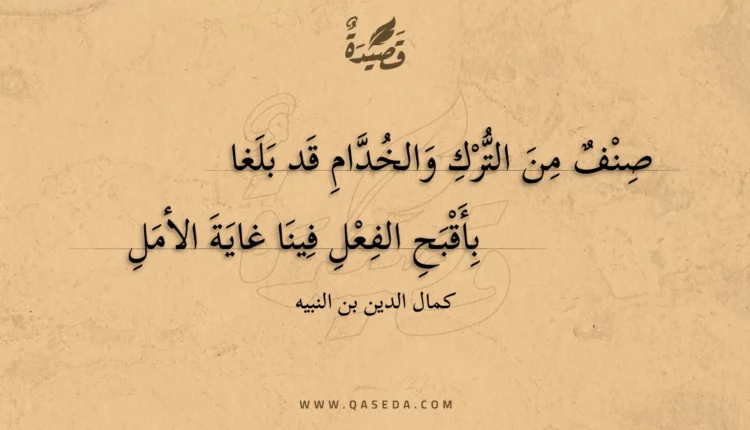 قَصِيدَةٌ
صِنْفٌ مِنَ التُّرْكِ وَالخُدَّامِ قَد بَلَغا
بِأَقْبَحِ الفِعْلِ فِينَا غايَةَ الأمَلِ
كمال الدين بن النبيه
WWW.QASEDA.COM